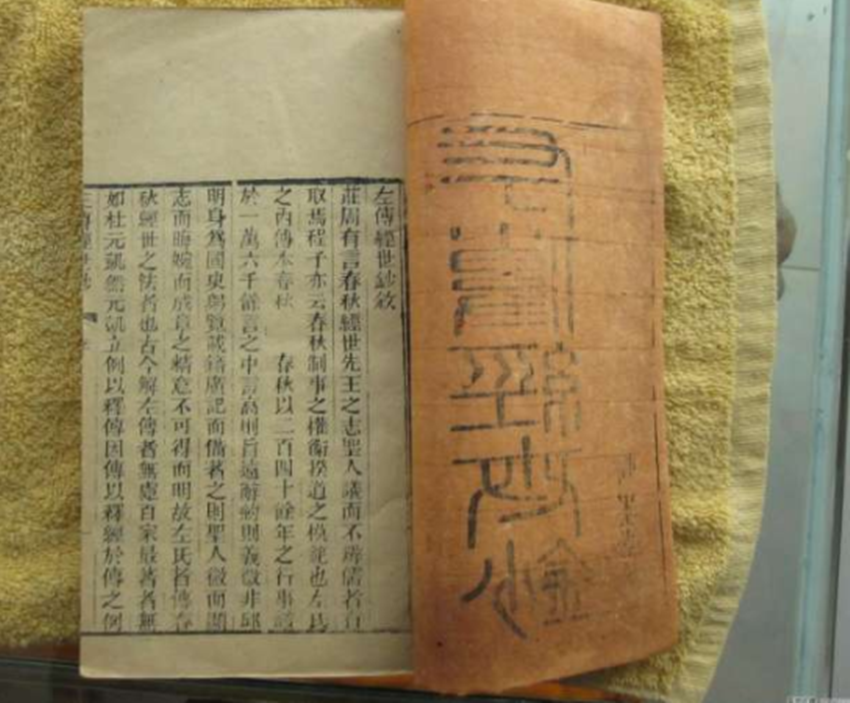 左傳經世鈔
左傳經世鈔敘
莊周有言春秋經世先王之志聖人議而不辨儒者有
取焉程子亦云春秋制事之權衡揆道之模範也左氏
之內傳本春秋 春秋以二百四十餘年之行事
於一萬六千餘言之中言高則旨遠辭約則義微非邱
明身為國史躬覽載籍廣記而備書之則聖人微而顯
志而晦婉而成章之精意不可得而明故左氏者傳春
秋經世之法者也古今解左傳者無慮百家最著者無
如杜元凱然元凱立例以釋傳因傳以釋經於傳之例